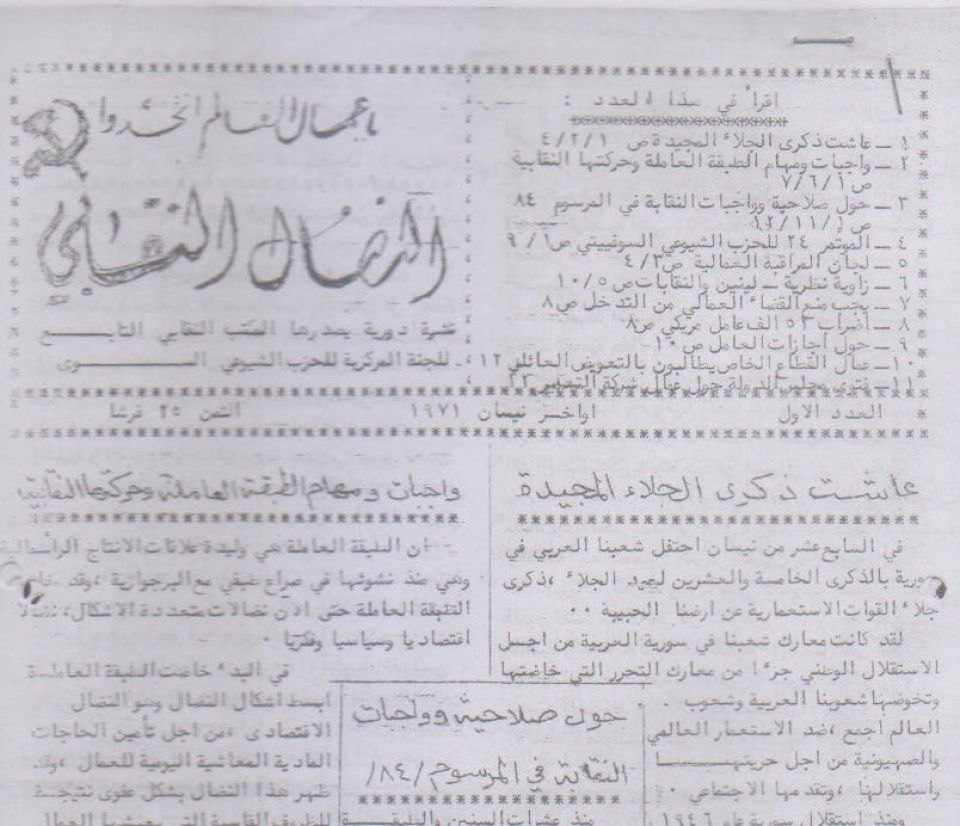 يا عمال العالم اتحدوا
النضال النقابي
نشرة دورية يصدرها المكتب النقابي التابـــــع
للجنة المركزية للحزب الشيوعي الســـــــوي
اقرأ في هذا العدد :
١ ــ عاشت ذكرى الجلاء المجيدة ص ٤/٢/١
٢ ــ واجبات ومهام الطبقة العاملة وحركتها النقابية
ص ٧/٦/١
٣ ــ حول صلاحية وواجبات النقابة في المرسوم ٨٤
ص ١٢/١١/١
٤ ــ المؤتمر ٢٤ للحزب الشيوعي السوفييتي ص٩/٦
٥ ــ لجان المراقبة العمالية ص٤/٣
٦ ــ زاوية نظرية ــ لينين والنقابات ص١٠/٥
٧ ــ يجب منع القضاء العمالي من التدخل ص٨
٨ ــ اضراب ٥٣ الف عامل مريكي ص٨
٩ ــ حول اجازات العامل ص١٠
١٠ــ عمال القطاع الخاص يطالبون بالتعويض العائلي ١٢
١١ــ فتوى مجلس الدولة حول عمال شركة
العدد الاول اواخر نيسان ١٩٧١ الثمن ٢٥ قرشا
عاشت ذكرى الجلاء المجيدة
في السابع عشر من نيسان احتفل شعبنا العربي في
سورية بالذكرى الخامسة والعشرين لعيد الجلاء ،ذكرى
جلاء القوات الاستعمارية عن ارضنا الحبيبة ٠٠
لقد كانت معارك شعبنا في سورية العربية من اجــل
الاستقلال الوطني جزءا من معارك التحرر التي خاضتها
وتخوضها شعوبنا العربية وشعوب
العالم اجمع ،ضد الاستعمار العالمي
والصهيونية من اجل حريتهـــــا
واستقلالها ،وتقدمها الاجتماعي ٠
ومنذ استقلال سورية عام ١٩٤٦
واجبات ومهام الطبقة العاملة وحركتها النقابية
ان الطبقة العاملة هي وليدة علاقات الانتاج الرأسمالية
وهي منذ نشوئها في صراع طبقي مع البرجوازية ،وقد
الطبقة العاملة حتى الان نضالات متعددة الاشكال،
اقتصاديا وسياسيا وفكريا ٠
في البدء خاضت الطبقة العاملــة
ابسط اشكال النضال وهو النضال
الاقتصادى ،من اجل تأمين الحاجات
المادية المعاشية اليومية للعمال ،وقد
ظهر هذا النضال بشكل عفوى نتيجــة
للظروف القاسية التي يعيشها العمال
حول صلاحية وواجبات
النقابة في المرسوم /٨٤/
منذ عشرات السنين والطبقــة